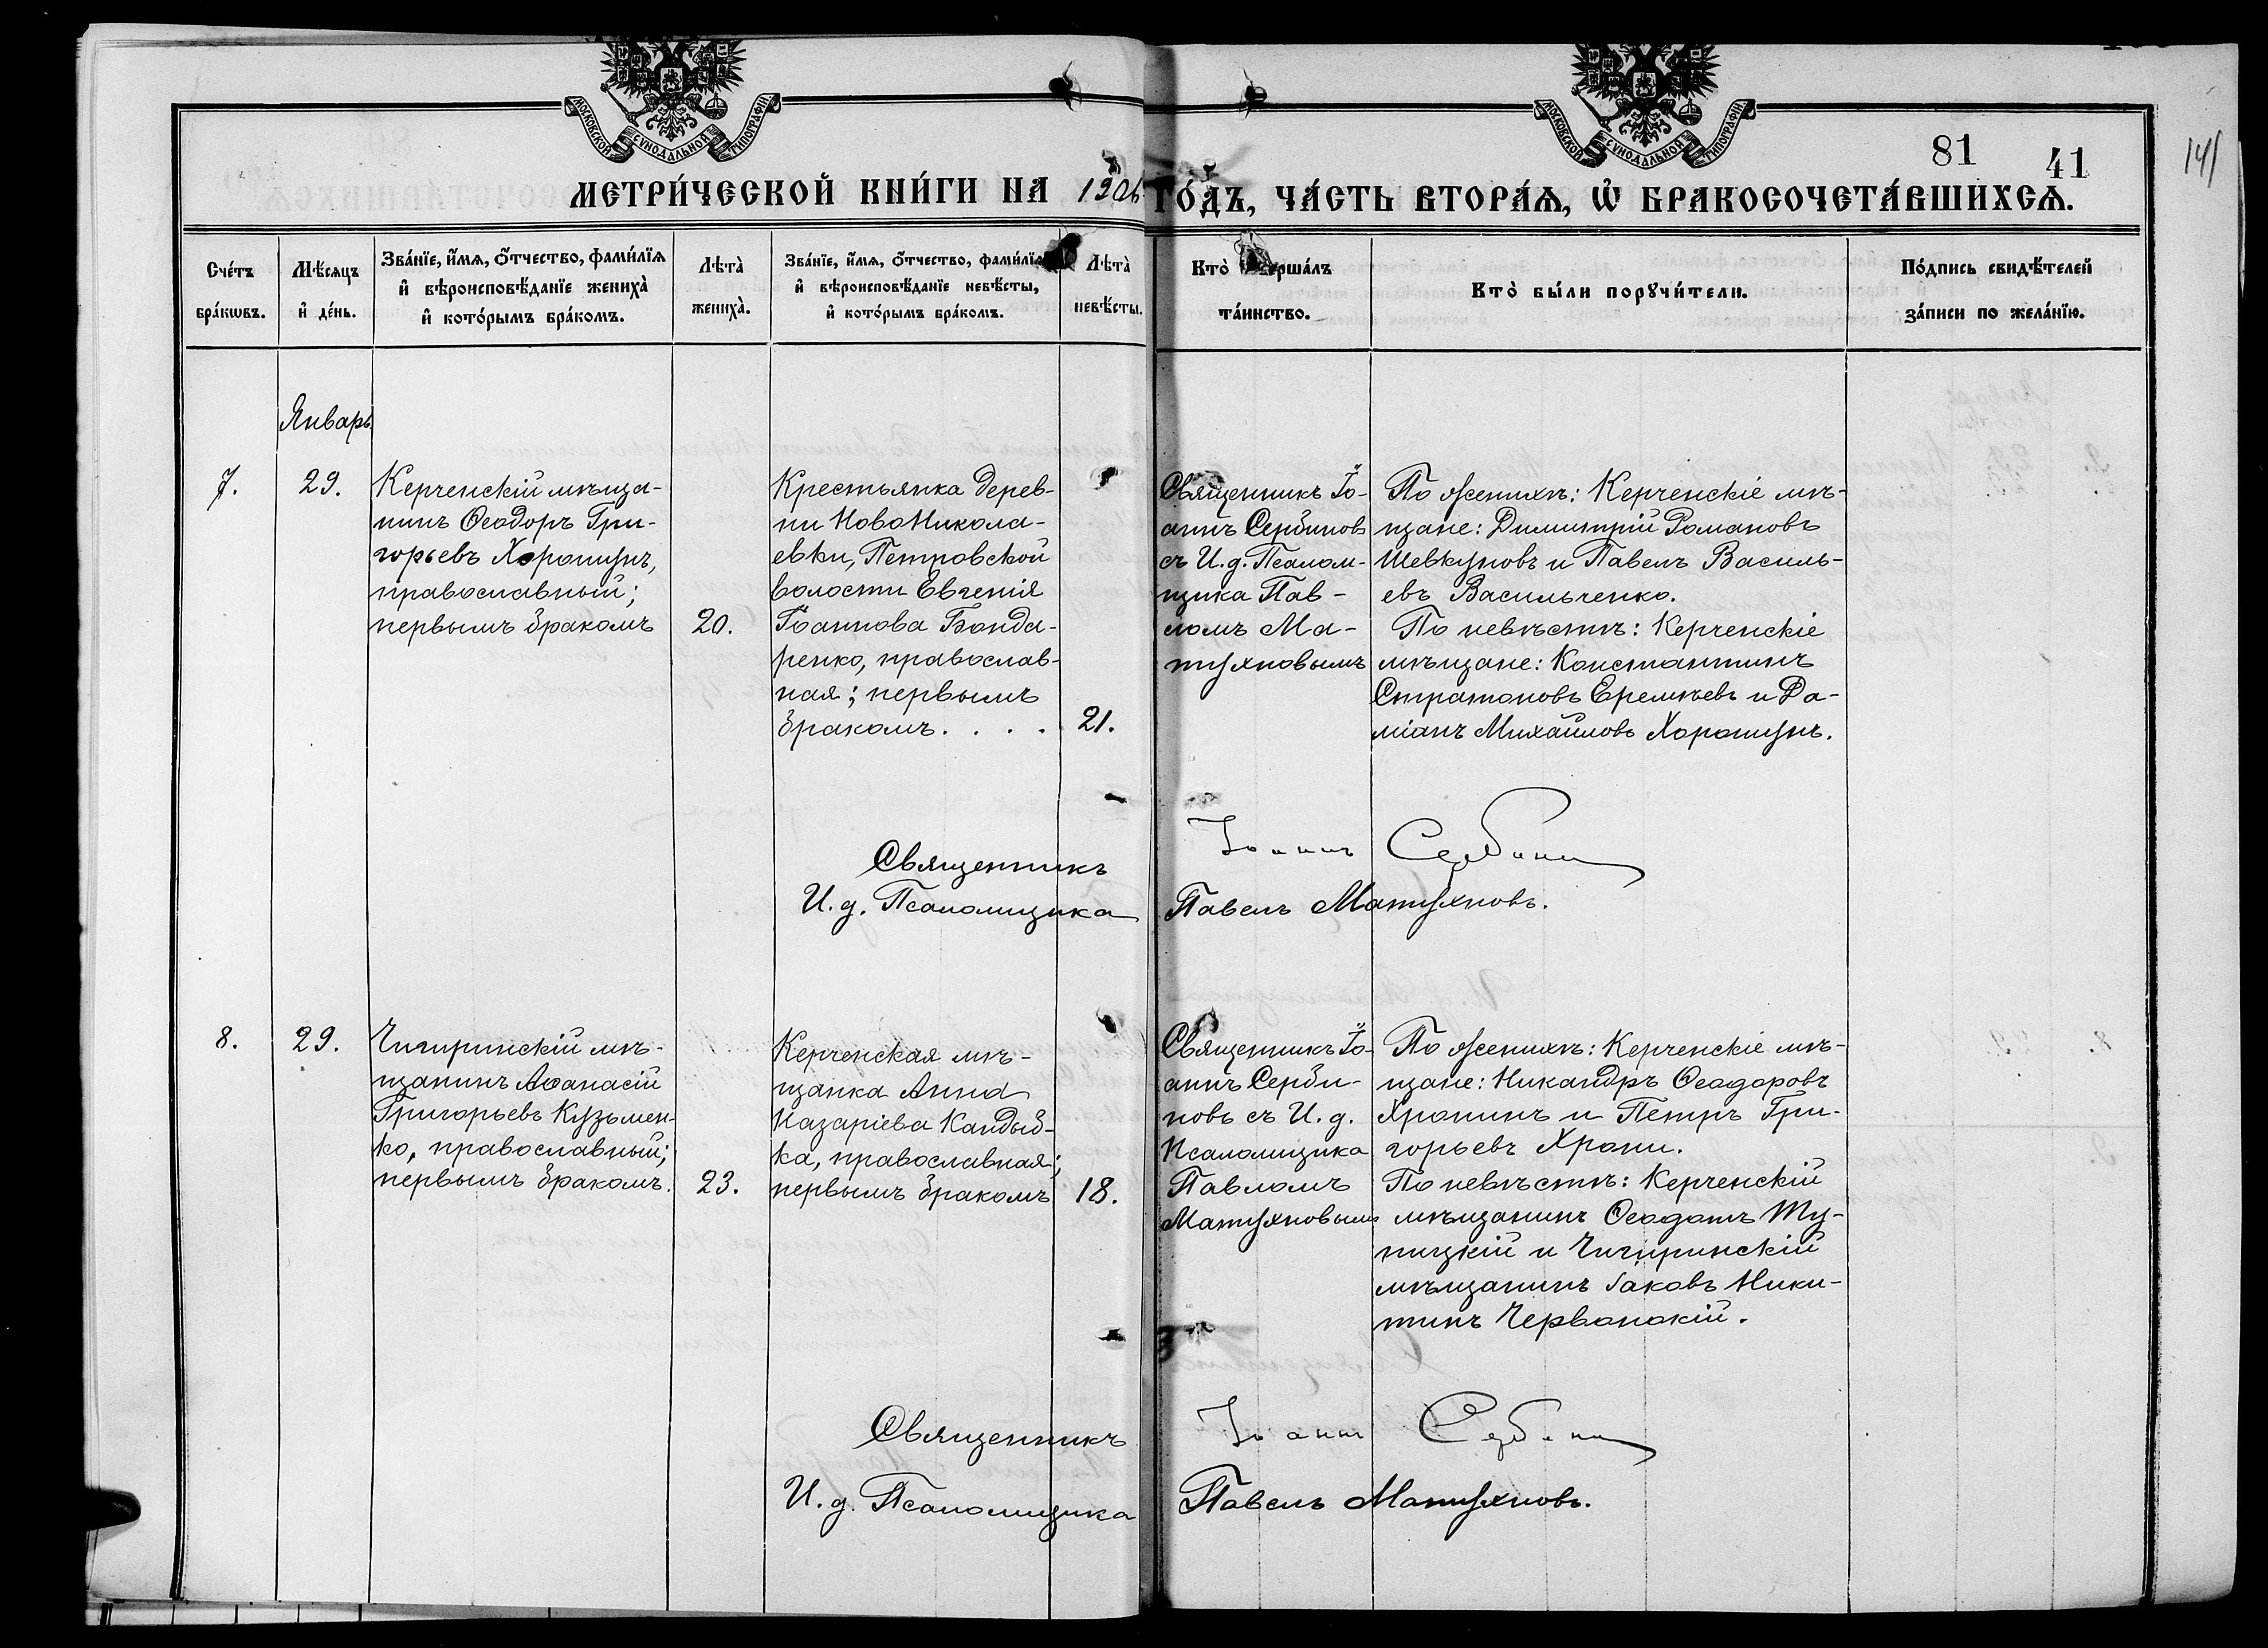 МОСКОВСКОЙ СѴНОДАЛЬНОЙ ТИПОГРАФІИ
МОСКОВСКОЙ СѴНОДАЛЬНОЙ ТИПОГРАФІИ
81
41
141
МЕТРИ́ЧЕСКОЙ КНИ́ГИ НА 1906 ГО́ДЪ, ЧА́СТЬ ВТОРА́Ѧ, Ѡ҆ БРАКОСОЧЕТА́ВШИХСѦ.
Сче́тъ
бра́кѡвъ.
Мѣ́сяцъ
и҆ де́нь.
Зва́нїе, и҆́мѧ, ѻ҆́тчество, фами́лїѧ
и҆ вѣроисповѣ́данїе жениха̀
и҆ кото́рымъ бра́комъ.
Лѣта̀
жениха̀.
Зва́нїе, и҆́мѧ, ѻ҆́тчество, фами́лїѧ
и҆ вѣроисповѣ́данїе невѣ́сты,
и҆ кото́рымъ бра́комъ.
Лѣта̀
невѣ́сты.
Кто̀
та́инство.
Кто̀ бы́ли порꙋчи́тели.
По́дпись свидѣ́телей
за́писи по жела́нїю.
Январь.
7.
29.
Керченскій мѣща-
нинъ Ѳеодоръ Гри-
горьевъ Хорошунъ,
православный;
первымъ бракомъ
20.
Крестьянка дерев-
ни НовоНикола-
евки, Петровской
волости Евгенія
Іоаннова Бонда-
ренко, православ-
ная; первымъ
бракомъ. . . .
21.
Священникъ Іо-
аннъ Сербиновъ
съ И. д. Псалом-
щика Пав-
ломъ Ма-
тухновымъ
По женихѣ: Керченскіе мѣ-
щане: Димитрій Романовъ
Шевкуновъ и Павелъ Василь-
евъ Васильченко.
По невѣстѣ: Керченскіе
мѣщане: Константинъ
Стратоновъ Еремѣевъ и Да-
міанъ Михайловъ Хорошунъ.
Священникъ Іоаннъ Сербинов
И. д. Псаломщика Павелъ Матухновъ.
8.
29.
Чигиринскій мѣ-
щанинъ Аѳанасій
Григорьевъ Кузьмен-
ко, православный;
первымъ бракомъ.
23.
Керченская мѣ-
щанка Анна
Назаріева Кандыб-
ка, православная;
первымъ бракомъ
18.
Священникъ Іо-
аннъ Серби-
новъ съ И. д.
Псаломщика
Павломъ
Матухновымъ
По женихѣ: Керченскіе мѣ-
щане: Никандръ Ѳеодоровъ
Хронинъ и Петръ Гри-
горьевъ Хрони.
По невѣстѣ: Керченскій
мѣщанинъ Ѳеодотъ Ту-
ницкій и Чигиринскій
мѣщанинъ Іаковъ Ники-
тинъ Червонокій.
Священникъ Іоаннъ Сербинов
И. д. Псаломщика Павелъ Матухновъ.